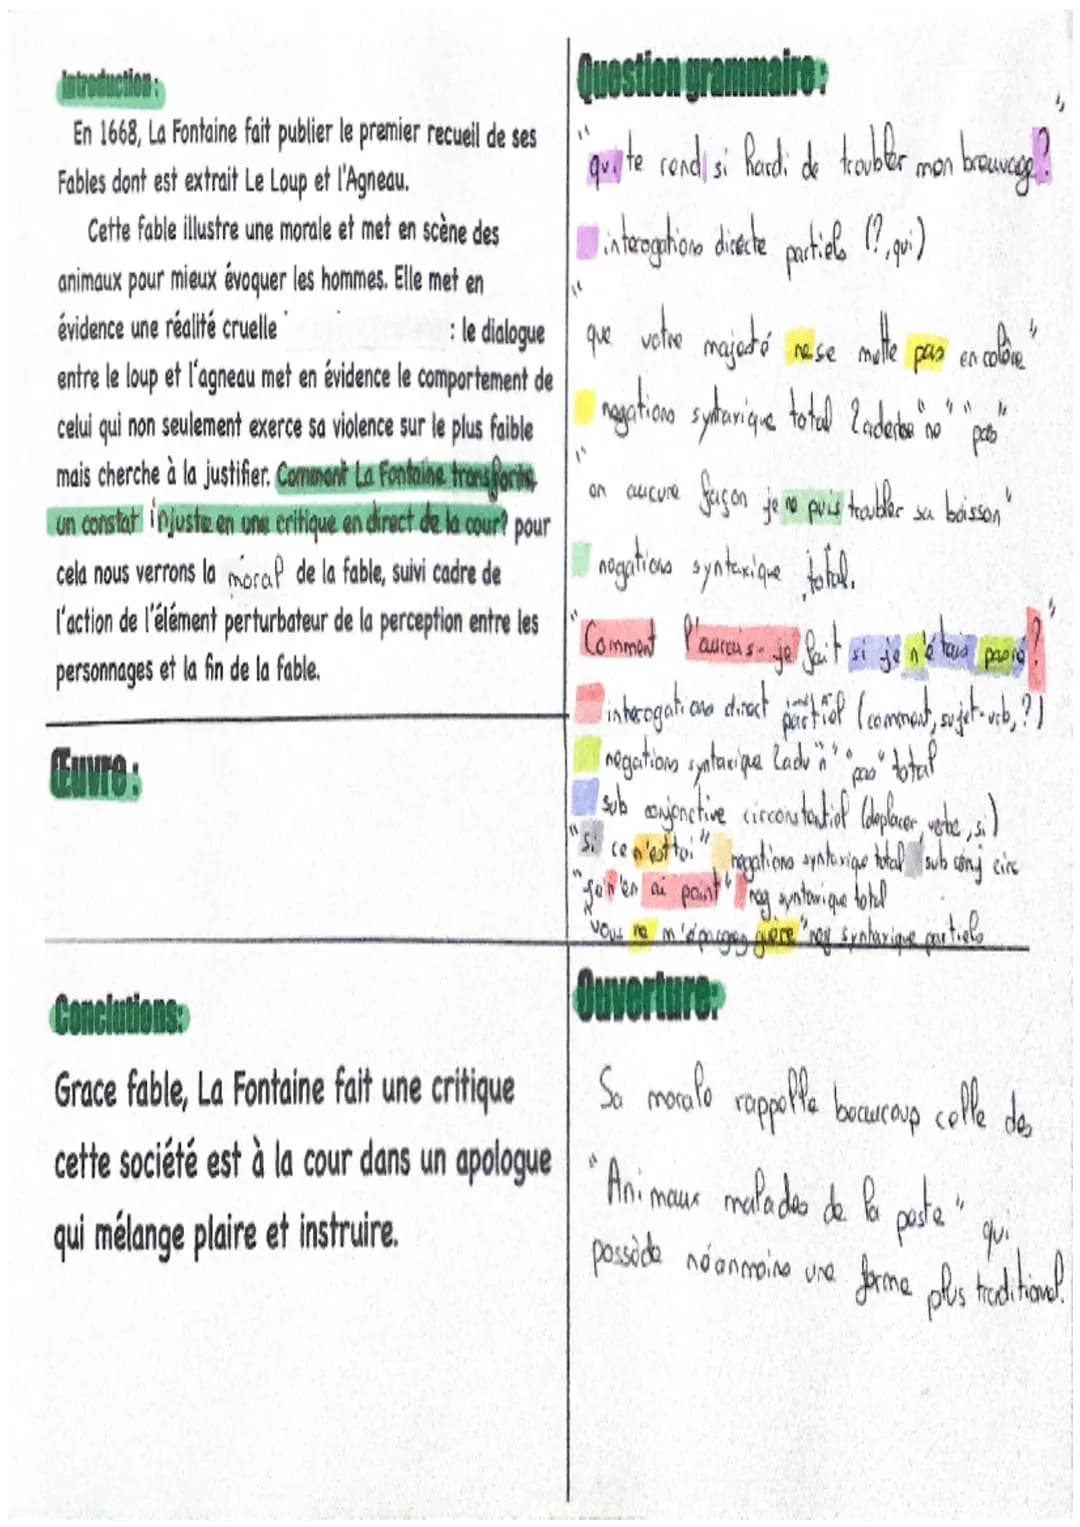 Introduction :
En 1668, La Fontaine fait publier le premier recueil de ses
Fables dont est extrait Le Loup et l'Agneau.
Cette fable illustre une morale et met en scène des
animaux pour mieux évoquer les hommes. Elle met en
évidence une réalité cruelle : le dialogue
entre le loup et l'agneau met en évidence le comportement de
celui qui non seulement exerce sa violence sur le plus faible
mais cherche à la justifier. Comment La Fontaine transforme
un constat injuste en une critique en direct de la cour? pour
cela nous verrons la moral de la fable, suivi cadre de
l'action de l'élément perturbateur de la perception entre les
personnages et la fin de la fable.
Œuvre :
Conclutions:
Grace fable, La Fontaine fait une critique
cette société est à la cour dans un apologue
qui mélange plaire et instruire.
Question grammaire :
"qui te rend si hardi de troubler mon breuvage?"
interogations directe partiels (?, qui)
"que votre majesté ne se mette pas en colère"
negations syntaxique total 2 aderbe "ne" "pas"
"en aucune façon je ne puis troubler sa boisson"
negations syntaxique total.
"Comment l'aurais-je fait si je n'étais pas né?"
interogations direct partiel (comment, sujet-verb, ?)
negations syntaxique 2 adv "n" "pas" total
sub conjonctive circonstantiel (deplacer, verbe, si)
"si ce n'est toi" negations syntaxique total sub conj circ
"je n'en ai point" neg syntaxique total
"Vous ne m'épargnez guère" neg syntaxique partiels
Ouverture:
Sa morale rappelle beaucoup celle des
"Animaux malades de la peste" qui
possède néanmoins une forme plus traditionel.